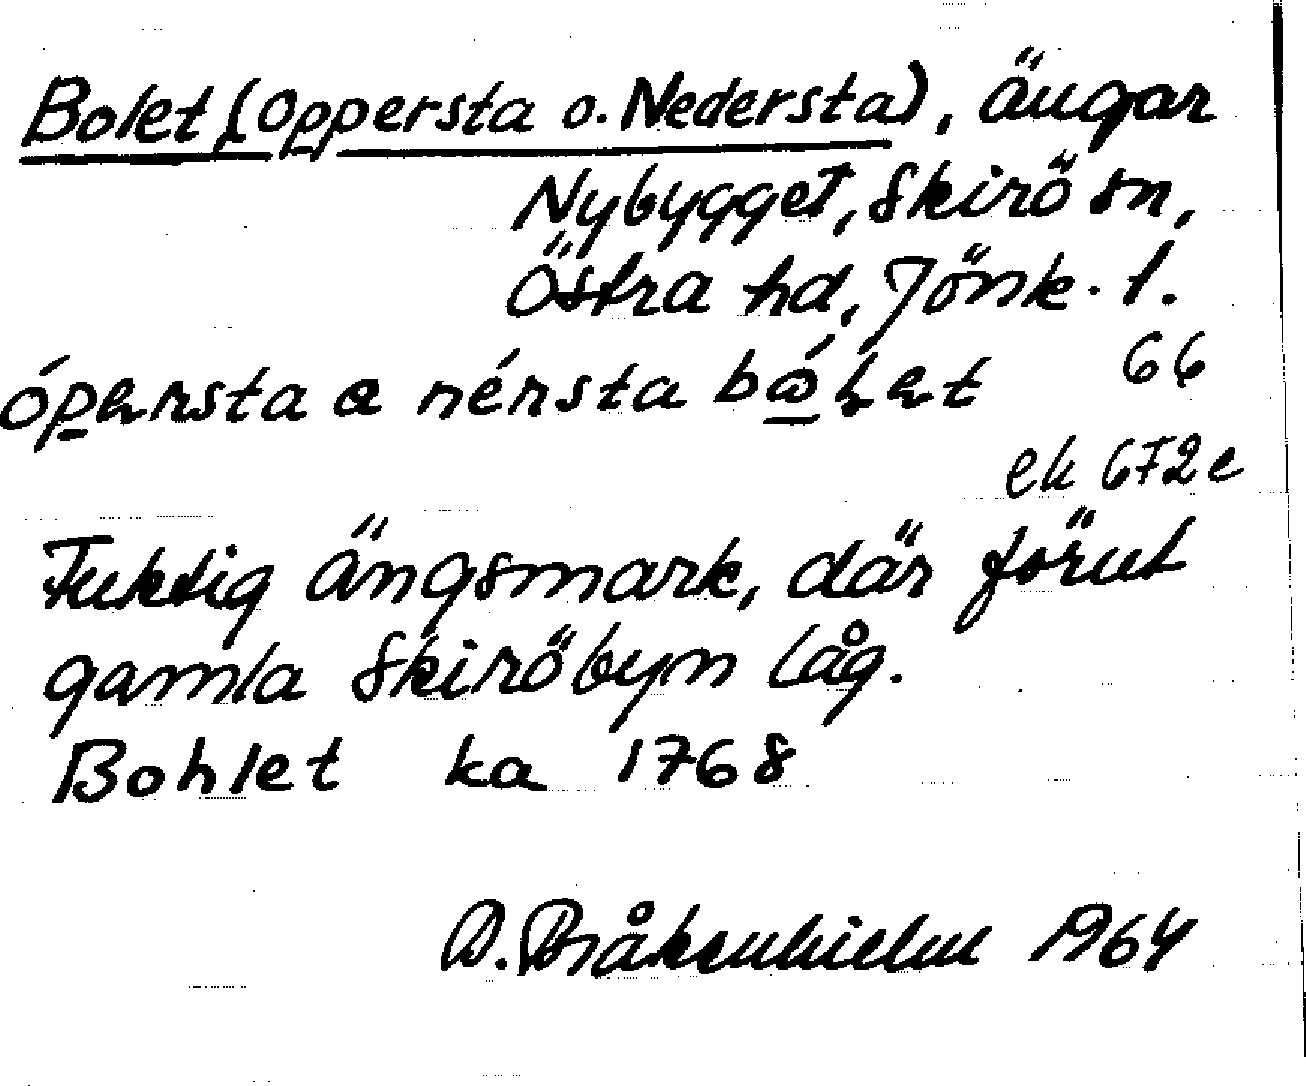 Bolet (Oppersta o. Nedersta), ängar
Nybygget, Skirö sn,
Östra hd, Jönk. l.
66
ek 6F2e
Fuktig ängsmark, där förut
gamla Skiröbyn låg.
Bohlet ka 1768
D. Bråkenhielm 1964